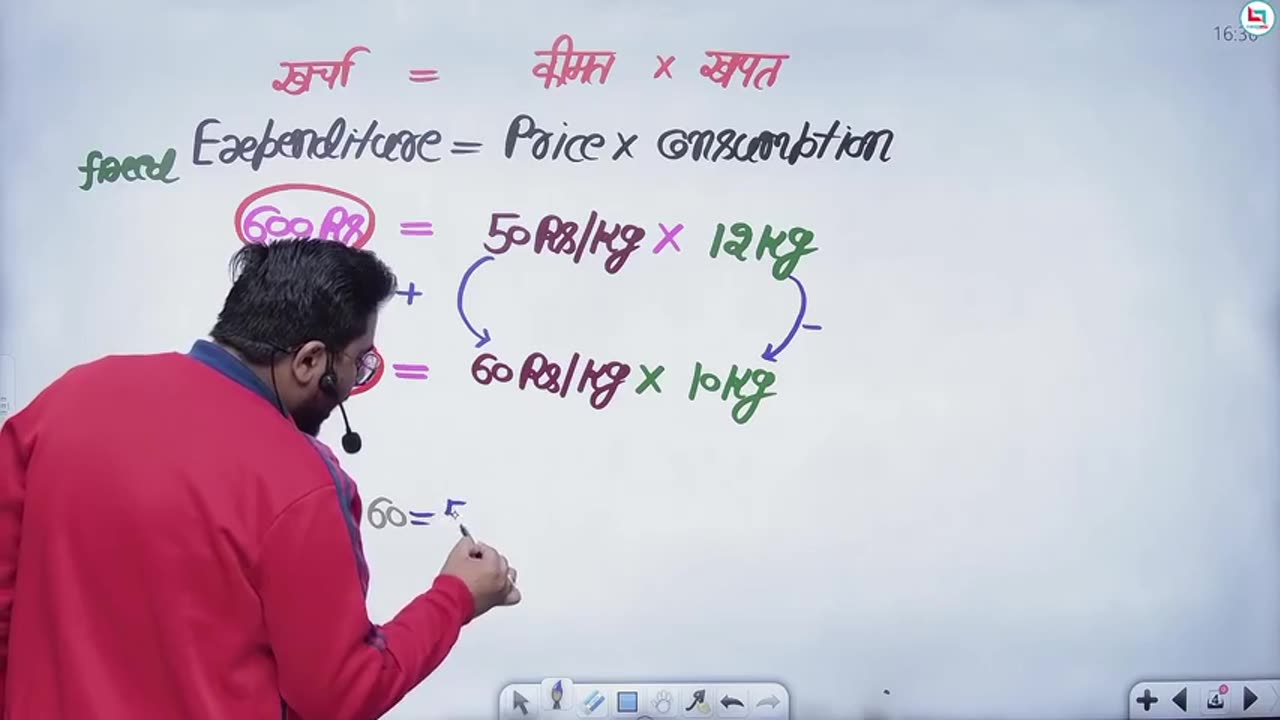 16:30
खर्चा = कीमत × खपत
fixed Expenditure = Price × Consumption
600 Rs = 50 Rs/Kg × 12 Kg
+ −
= 60 Rs/Kg × 10 Kg
60 = 5
4